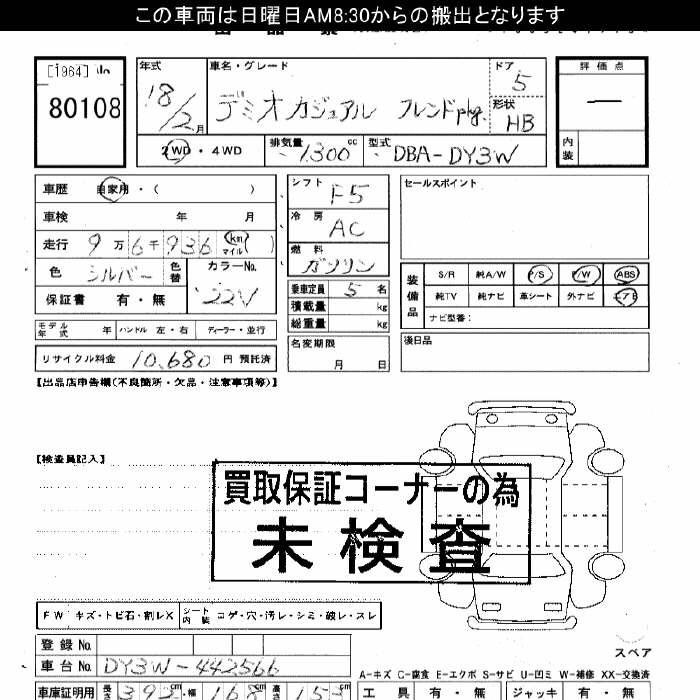 この車両は日曜日AM8:30からの搬出となります
[1964]
80108
年式 車名・グレード ドア 5 評価点
18/2月 デミオ カジュアル フレンドpkg. 形状 HB
2WD・4WD 排気量 1300cc 型式 DBA-DY3W 内装
車歴 自家用・( )
車検 年 月
走行 9万6千936 km マイル ( )
色 シルバー 色替 カラーNo. 22V
保証書 有・無
モデル年式 年 ハンドル 左・右 ディーラー・並行
リサイクル料金 10,680 円 預託済
シフト F5
冷房 AC
燃料 ガソリン
乗車定員 5 名
積載量 kg
総重量 kg
名変期限
月 日
セールスポイント
装備品 S/R 純A/W P/S P/W ABS
純TV 純ナビ 革シート 外ナビ エアB
ナビ型番:
後日品
【出品店申告欄(不良箇所・欠品・注意事項等)】
【検査員記入】
買取保証コーナーの為
未検査
FW キズ・トビ石・割レX シート内装 コゲ・穴・汚レ・シミ・破レ・スレ
スペア
登録No.
車台No. DY3W-442566
A-キズ C-腐食 E-エクボ S-サビ U-凹ミ W-補修 XX-交換済
車庫証明用 長さ 392cm・幅 168cm 高さ 153
工具 有・無 ジャッキ 有・無